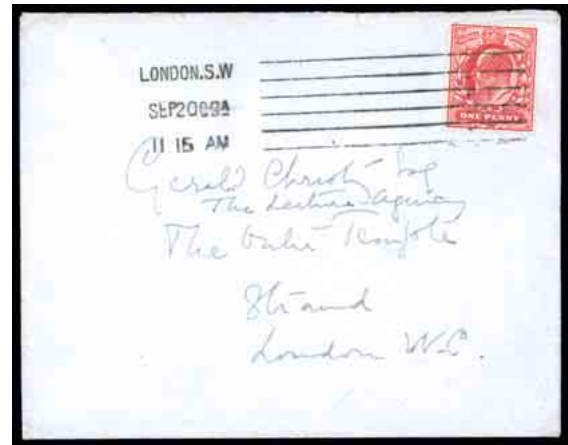 LONDON.S.W
SEP 20 09 A
11 15 AM
ONE PENNY
Gerald Christy Esq
The Lecture Agency
The Outer Temple
Strand
London W.C.